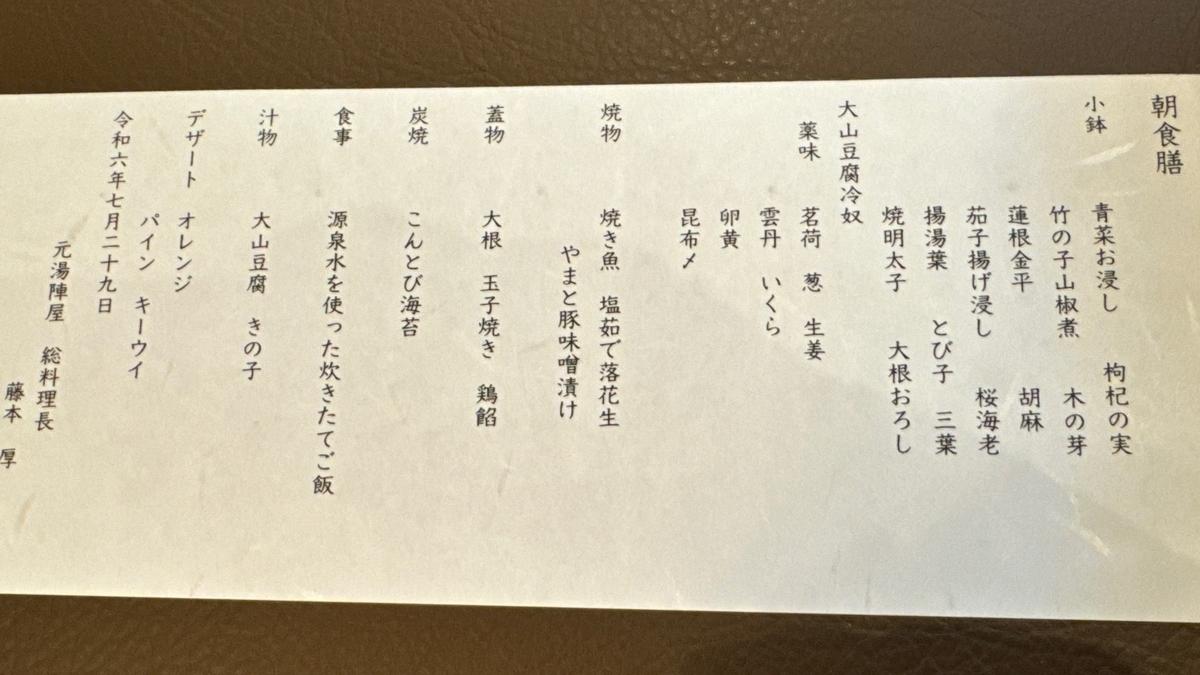 朝食膳
小鉢
青菜お浸し 枸杞の実
竹の子山椒煮 木の芽
蓮根金平 胡麻
茄子揚げ浸し 桜海老
揚湯葉 とび子 三葉
焼明太子 大根おろし
大山豆腐冷奴
薬味 茗荷 葱 生姜
雲丹 いくら
卵黄
昆布〆
焼物 焼き魚 塩茹で落花生
やまと豚味噌漬け
蓋物 大根 玉子焼き 鶏餡
炭焼 こんとび海苔
食事 源泉水を使った炊きたてご飯
汁物 大山豆腐 きの子
デザート オレンジ
パイン キーウイ
令和六年七月二十九日
元湯陣屋 総料理長
藤本 厚